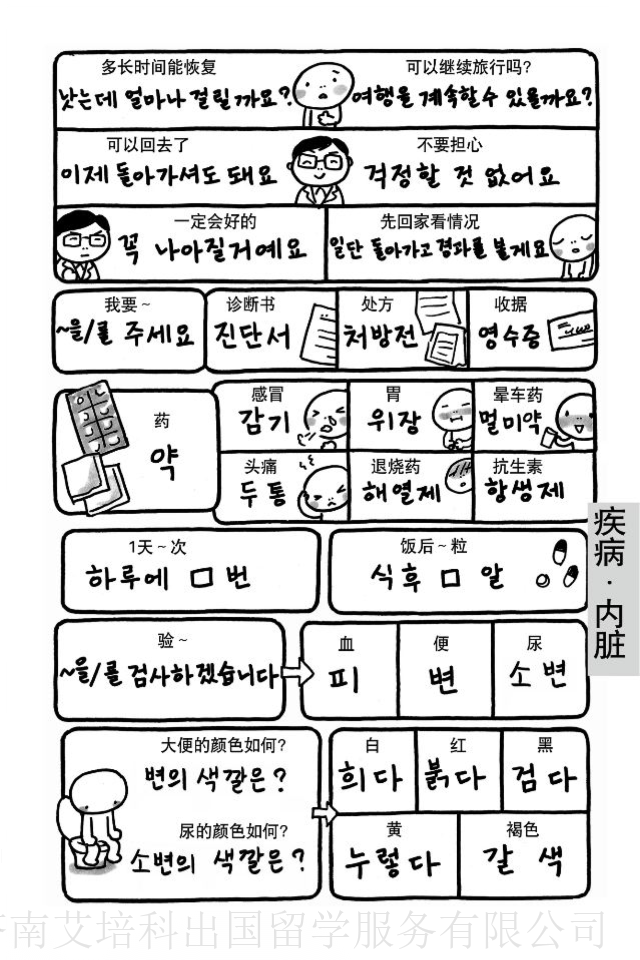 多长时间能恢复
낫는데 얼마나 걸릴까요?
可以继续旅行吗?
여행을 계속할수 있을까요?
可以回去了
이제 돌아가셔도 돼요
不要担心
걱정할 것 없어요
一定会好的
꼭 나아질거예요
先回家看情况
일단 돌아가고 경과를 볼게요
我要~
~을/를 주세요
诊断书
진단서
处方
처방전
收据
영수증
药
약
感冒
감기
胃
위장
晕车药
멀미약
头痛
두통
退烧药
해열제
抗生素
항생제
1天~次
하루에 □ 번
饭后~粒
식후 □ 알
疾病·内脏
验~
~을/를 검사하겠습니다
血
피
便
변
尿
소변
大便的颜色如何?
변의 색깔은?
尿的颜色如何?
소변의 색깔은?
白
희다
红
붉다
黑
검다
黄
누렇다
褐色
갈색
济南艾培科出国留学服务有限公司